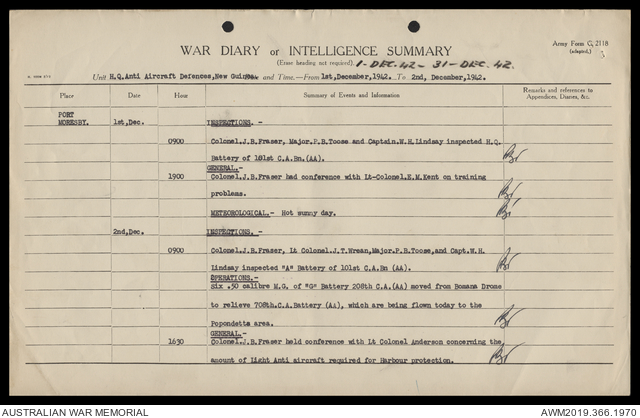 Army Form C. 2118
(adapted.)
WAR DIARY or INTELLIGENCE SUMMARY
(Erase heading not required). 1-DEC.42- 31-DEC.42.
Unit H.Q.Anti Aircraft Defences,New Guinea and Time.—From 1st,December,1942. To 2nd, December,1942.
Place Date Hour Summary of Events and Information Remarks and references to Appendices, Diaries, &c.
PORT
MORESBY. 1st,Dec. INSPECTIONS. -
0900 Colonel.J.B.Fraser, Major.P.B.Toose and Captain.W.H.Lindsay inspected H.Q.
Battery of 101st C.A.Bn.(AA).
GENERAL.-
1900 Colonel.J.B.Fraser had conference with Lt-Colonel.E.M.Kent on training
problems.
METEOROLOGICAL.- Hot sunny day.
2nd,Dec. INSPECTIONS. -
0900 Colonel.J.B.Fraser, Lt Colonel.J.T.Wrean,Major.P.B.Toose,and Capt.W.H.
Lindsay inspected "A" Battery of 101st C.A.Bn (AA).
OPERATIONS.-
Six .50 calibre M.G. of "G" Battery 208th C.A.(AA) moved from Bomana Drome
to relieve 708th.C.A.Battery (AA), which are being flown today to the
Popondetta area.
GENERAL.-
1630 Colonel.J.B.Fraser held conference with Lt Colonel Anderson concerning the
amount of Light Anti aircraft required for Harbour protection.
AUSTRALIAN WAR MEMORIAL AWM2019.366.1970